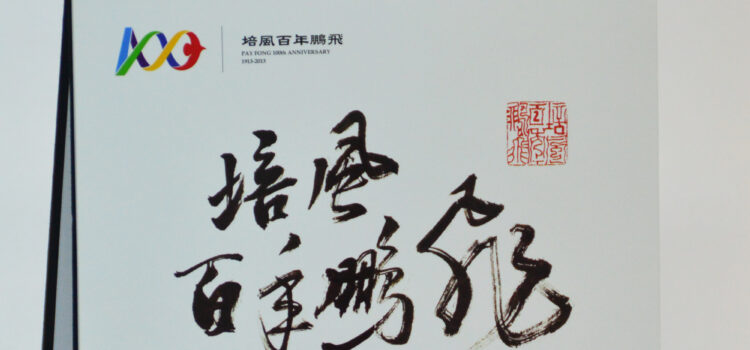 培風百年鵬飛
PAY FONG 100th ANNIVERSARY
1913-2013
培風
百年鵬飛
培風百年鵬飛